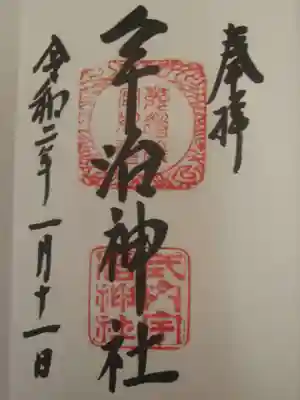 奉拝
宇治神社
令和二年一月十一日
式内宇
治神社